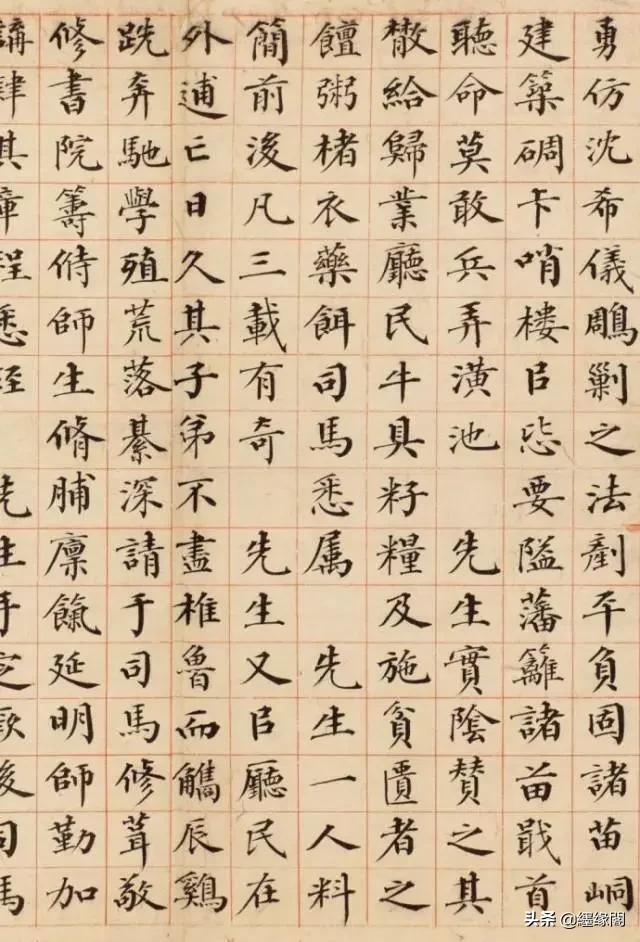 勇仿沈希儀鵰剿之法剷平負固諸苗峒
建築碉卡哨樓㠯要隘藩籬諸苗戢首
聽命莫敢兵弄潢池 先生實陰贊之其
散給歸業廳民牛具籽糧及施貧匱者之
饘粥楮衣藥餌司馬悉属 先生一人料
簡前後凡三載有奇 先生又㠯廳民在
外逋亡日久其子弟不盡椎魯而觿辰鷄
跣奔馳學殖荒落綦深請于司馬修葺敬
修書院籌偫師生脩脯廩餼延明師勤加
講肄其章程悉經 先生手定厥後司馬
头条 @纆缘閣